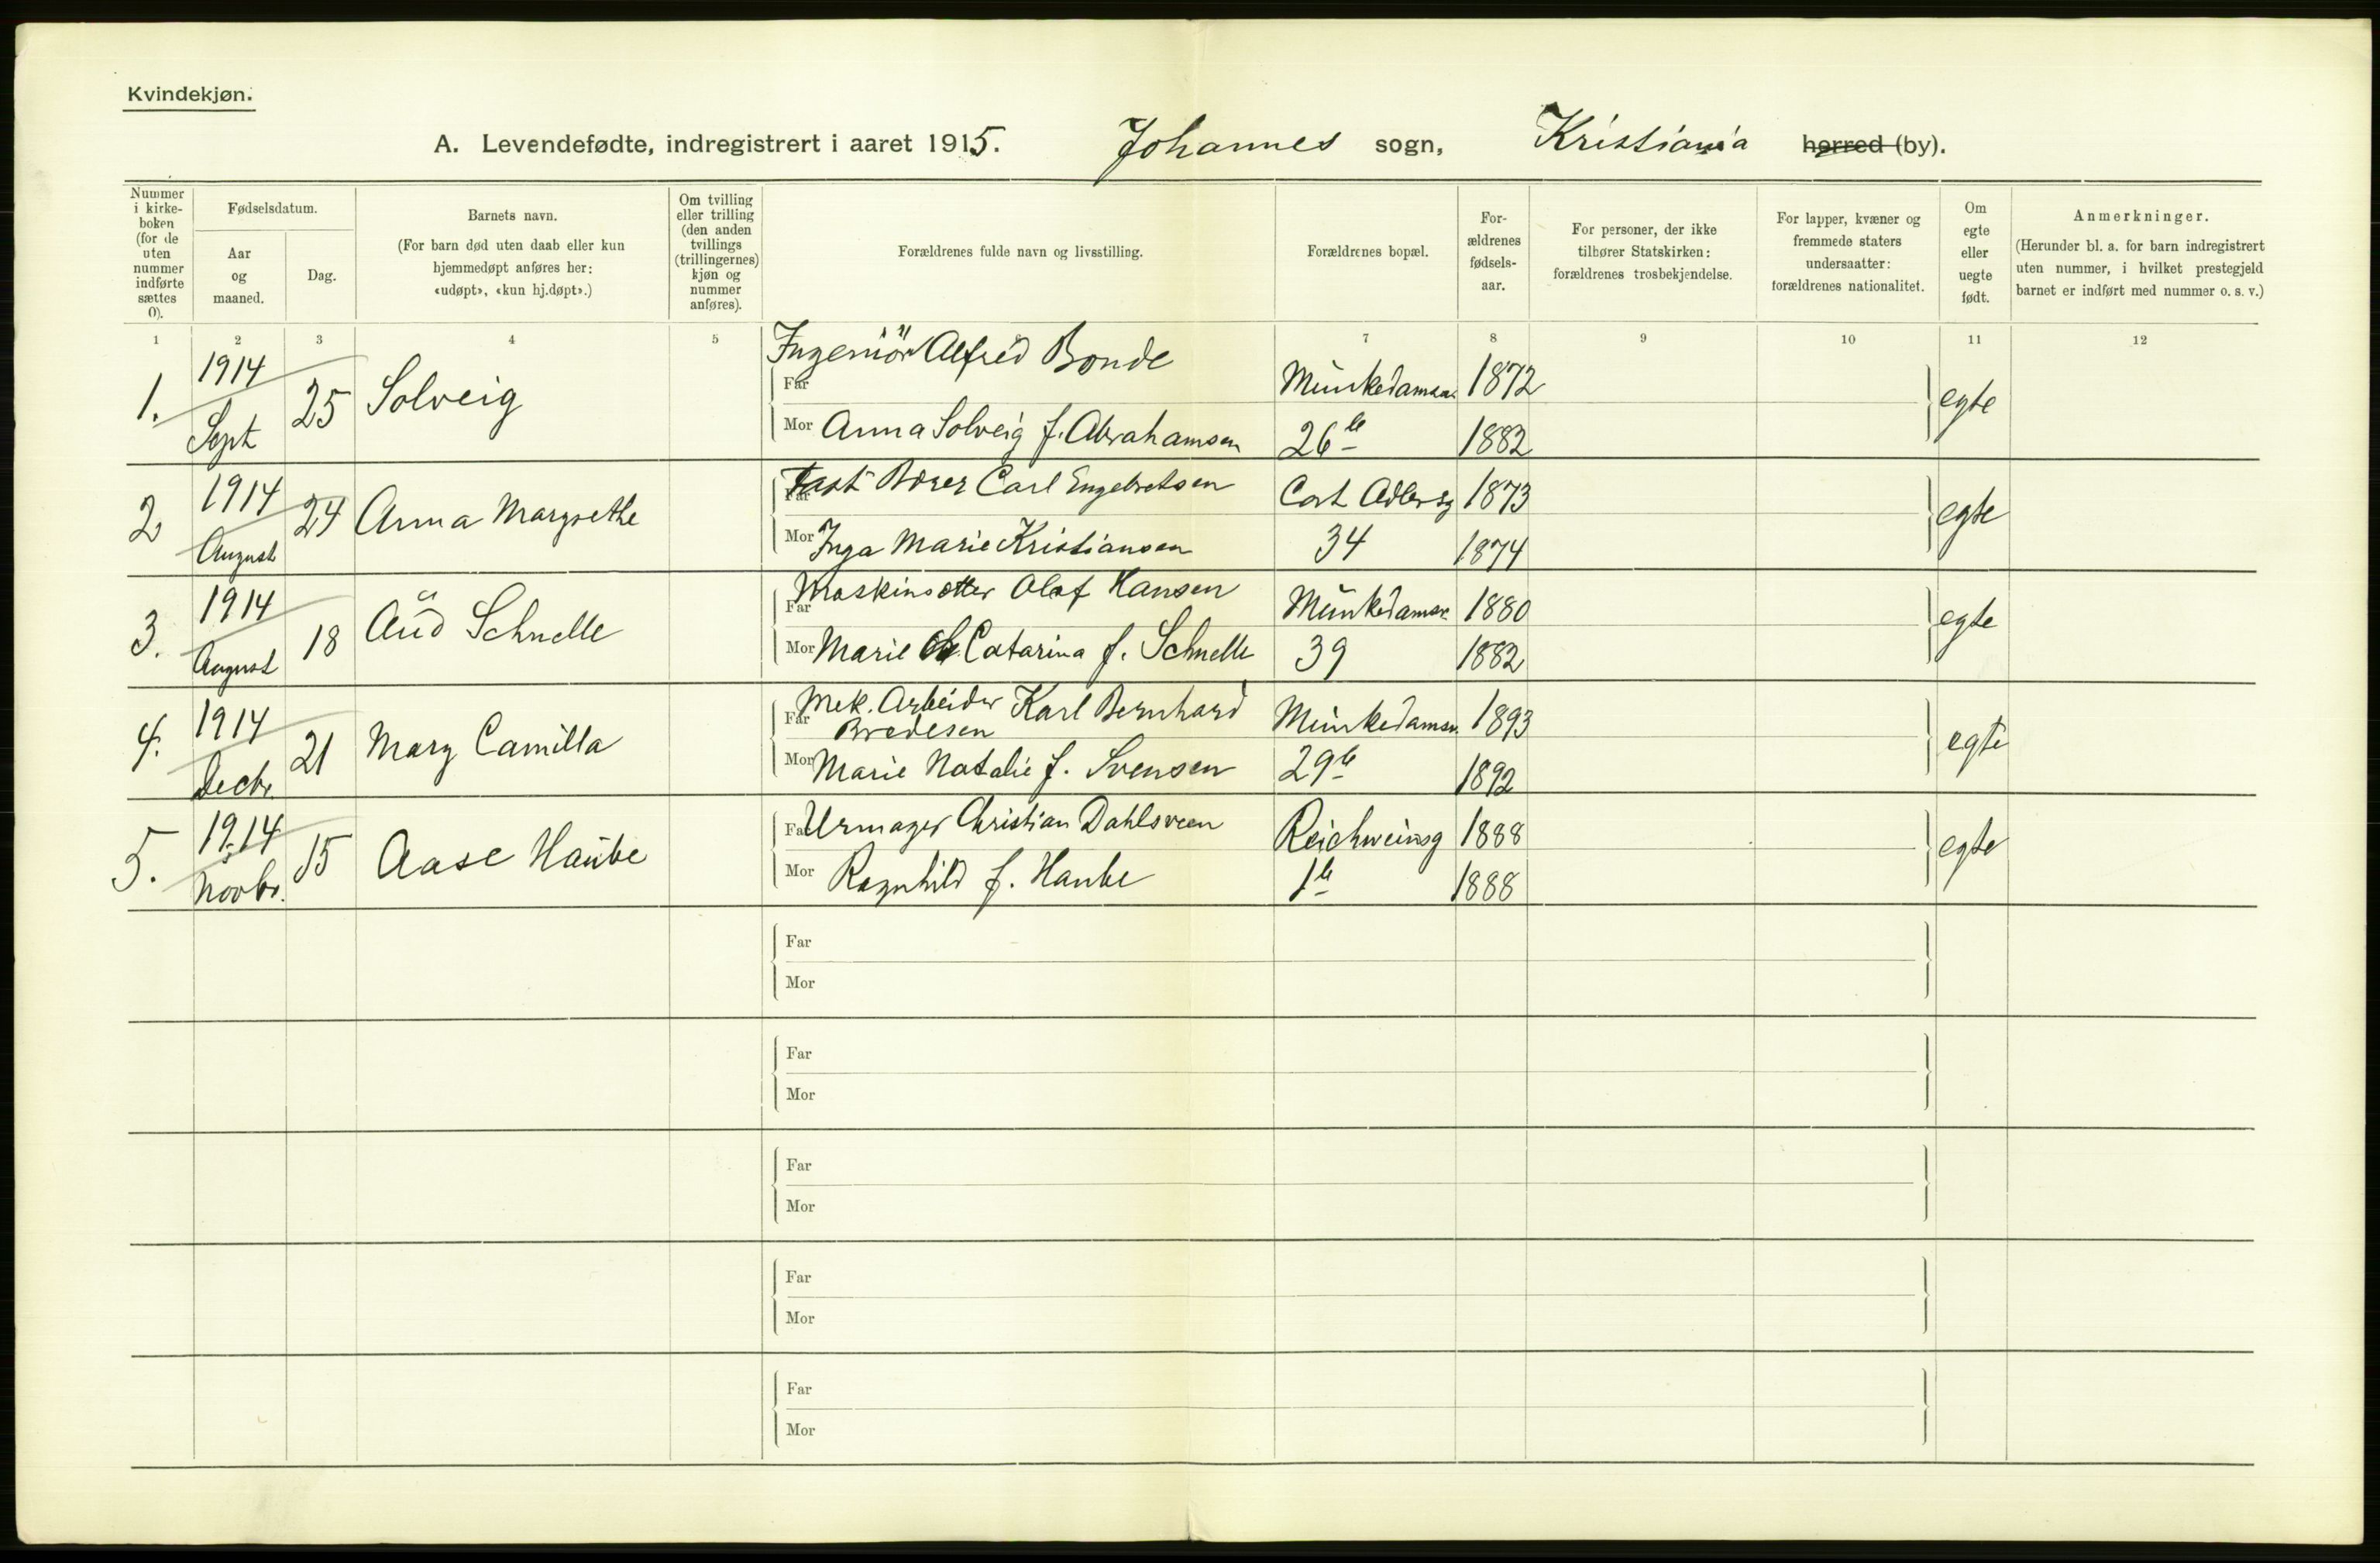 Kvindekjøn.
A. Levendefødte, indregistrert i aaret 1915. Johannes sogn, Kristiania herred (by).
Nummer i kirke-boken (for de uten nummer indførte sættes 0).
Fødselsdatum.
Aar og maaned.
Dag.
Barnets navn.
(For barn død uten daab eller kun hjemmedøpt anføres her: «udøpt», «kun hj.døpt».)
Om tvilling eller trilling (den anden tvillings (trillingernes) kjøn og nummer anføres).
Forældrenes fulde navn og livsstilling.
Forældrenes bopæl.
For-ældrenes fødsels-aar.
For personer, der ikke tilhører Statskirken: forældrenes trosbekjendelse.
For lapper, kvæner og fremmede staters undersaatter: forældrenes nationalitet.
Om egte eller uegte født.
Anmerkninger.
(Herunder bl. a. for barn indregistrert uten nummer, i hvilket prestegjeld barnet er indført med nummer o. s. v.)
1 2 3 4 5 7 8 9 10 11 12
1. 1914 Sept 25 Solveig
Far Ingeniör Alfred Bonde Munkedamsv. 1872 egte
Mor Anna Solveig f. Abrahamsen 26 b 1882
2 1914 August 24 Anna Margrethe
Far Carl Engebretsen Cort Adlersg 1873 egte
Mor Inga Marie Kristiansen 34 1874
3. 1914 August 18 Aud Schnelle
Far Olaf Hansen Munkedamsv. 1880 egte
Mor Marie Catarina f. Schnelle 39 1882
4. 1914 Decbr. 21 Mary Camilla
Far Mek. Arbeider Karl Bernhard Bredesen Munkedamsv. 1893 egte
Mor Marie Natalie f. Svensen 29 b 1892
5. 1914 Novbr. 15 Aase Haube
Far Urmager Christian Dahlsveen Reichweinsg 1888 egte
Mor Ragnhild f. Haube 1 b 1888
Far
Mor
Far
Mor
Far
Mor
Far
Mor
Far
Mor